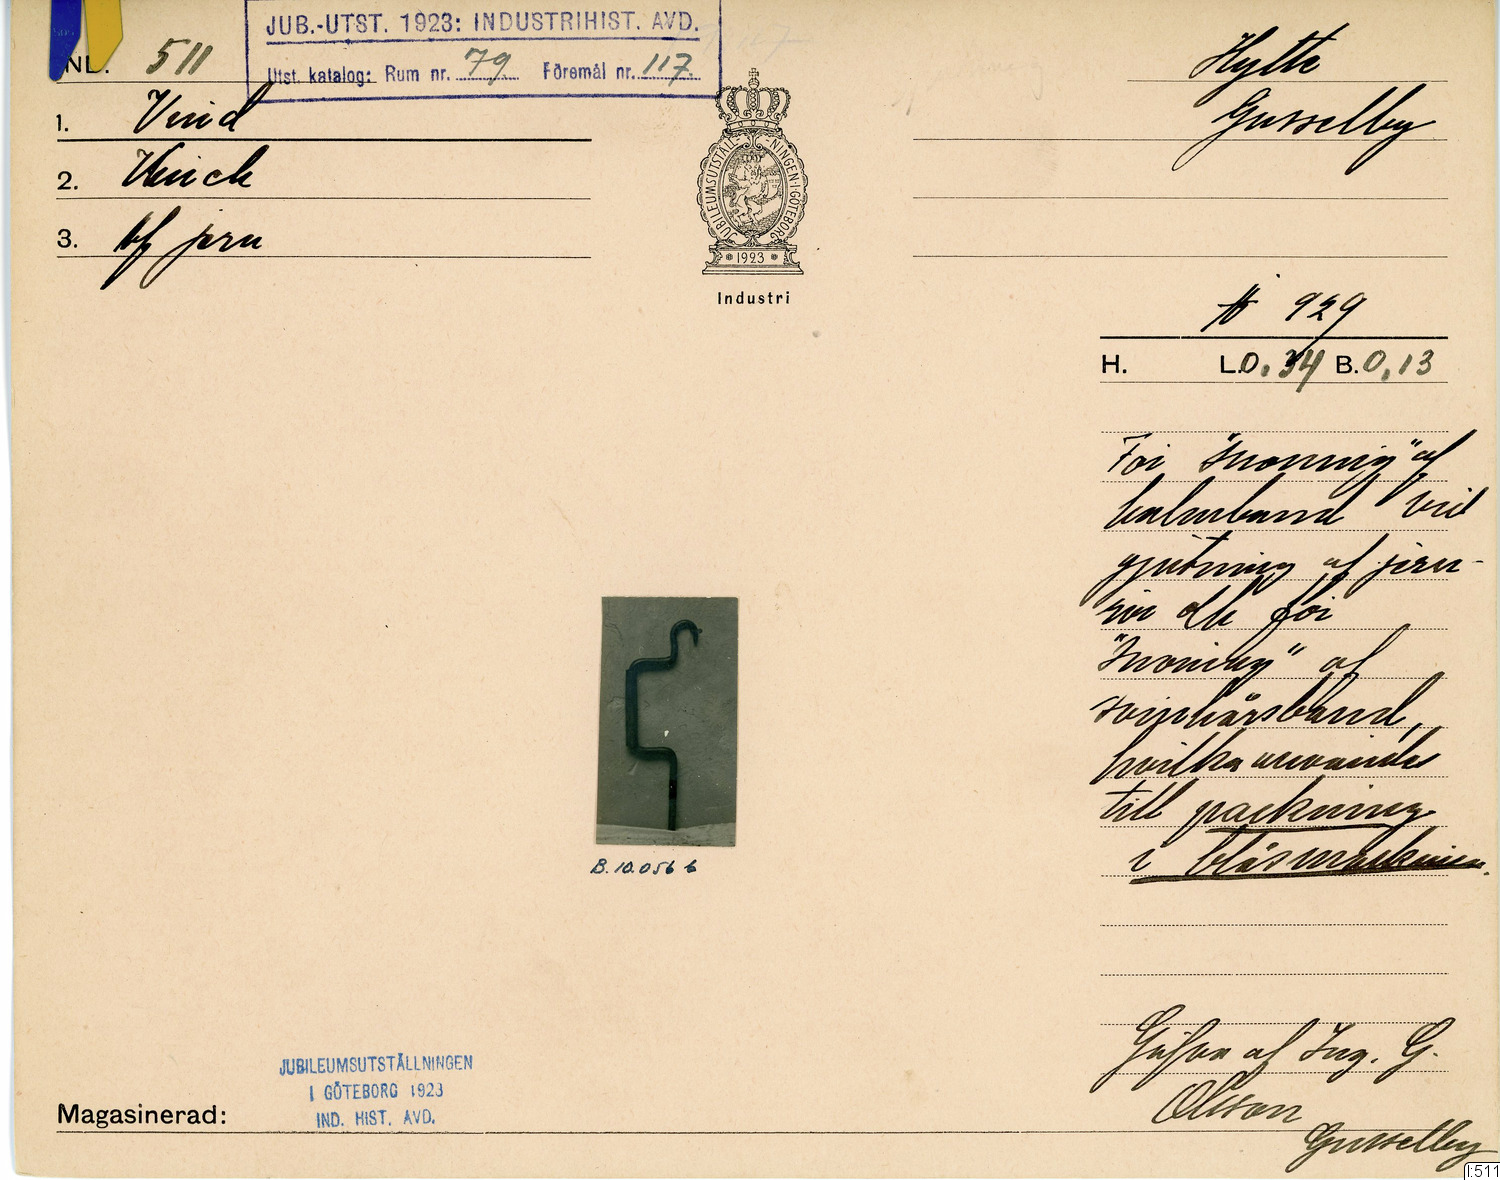 JUB.-UTST. 1923: INDUSTRIHIST. AVD.
Utst. katalog: Rum nr. 79 Föremål nr. 117
IND. 511
1. Vind
2. Vinch
3. af jern
JUBILEUMSUTSTÄLLNINGEN I GÖTEBORG
1923
Industri
Hytte
Gusselby
929
H. L. 0.34 B. 0,13
För "snoning" af
halmband vid
gjutning af jern-
rör och för
"snoning" af
svinhårsband,
hvilka användes
till packning
i blåsmaskinen.
B. 10.056 b
Gåfva af Ing. G.
Olsson
Gusselby
JUBILEUMSUTSTÄLLNINGEN
I GÖTEBORG 1923
IND. HIST. AVD.
Magasinerad:
I:511